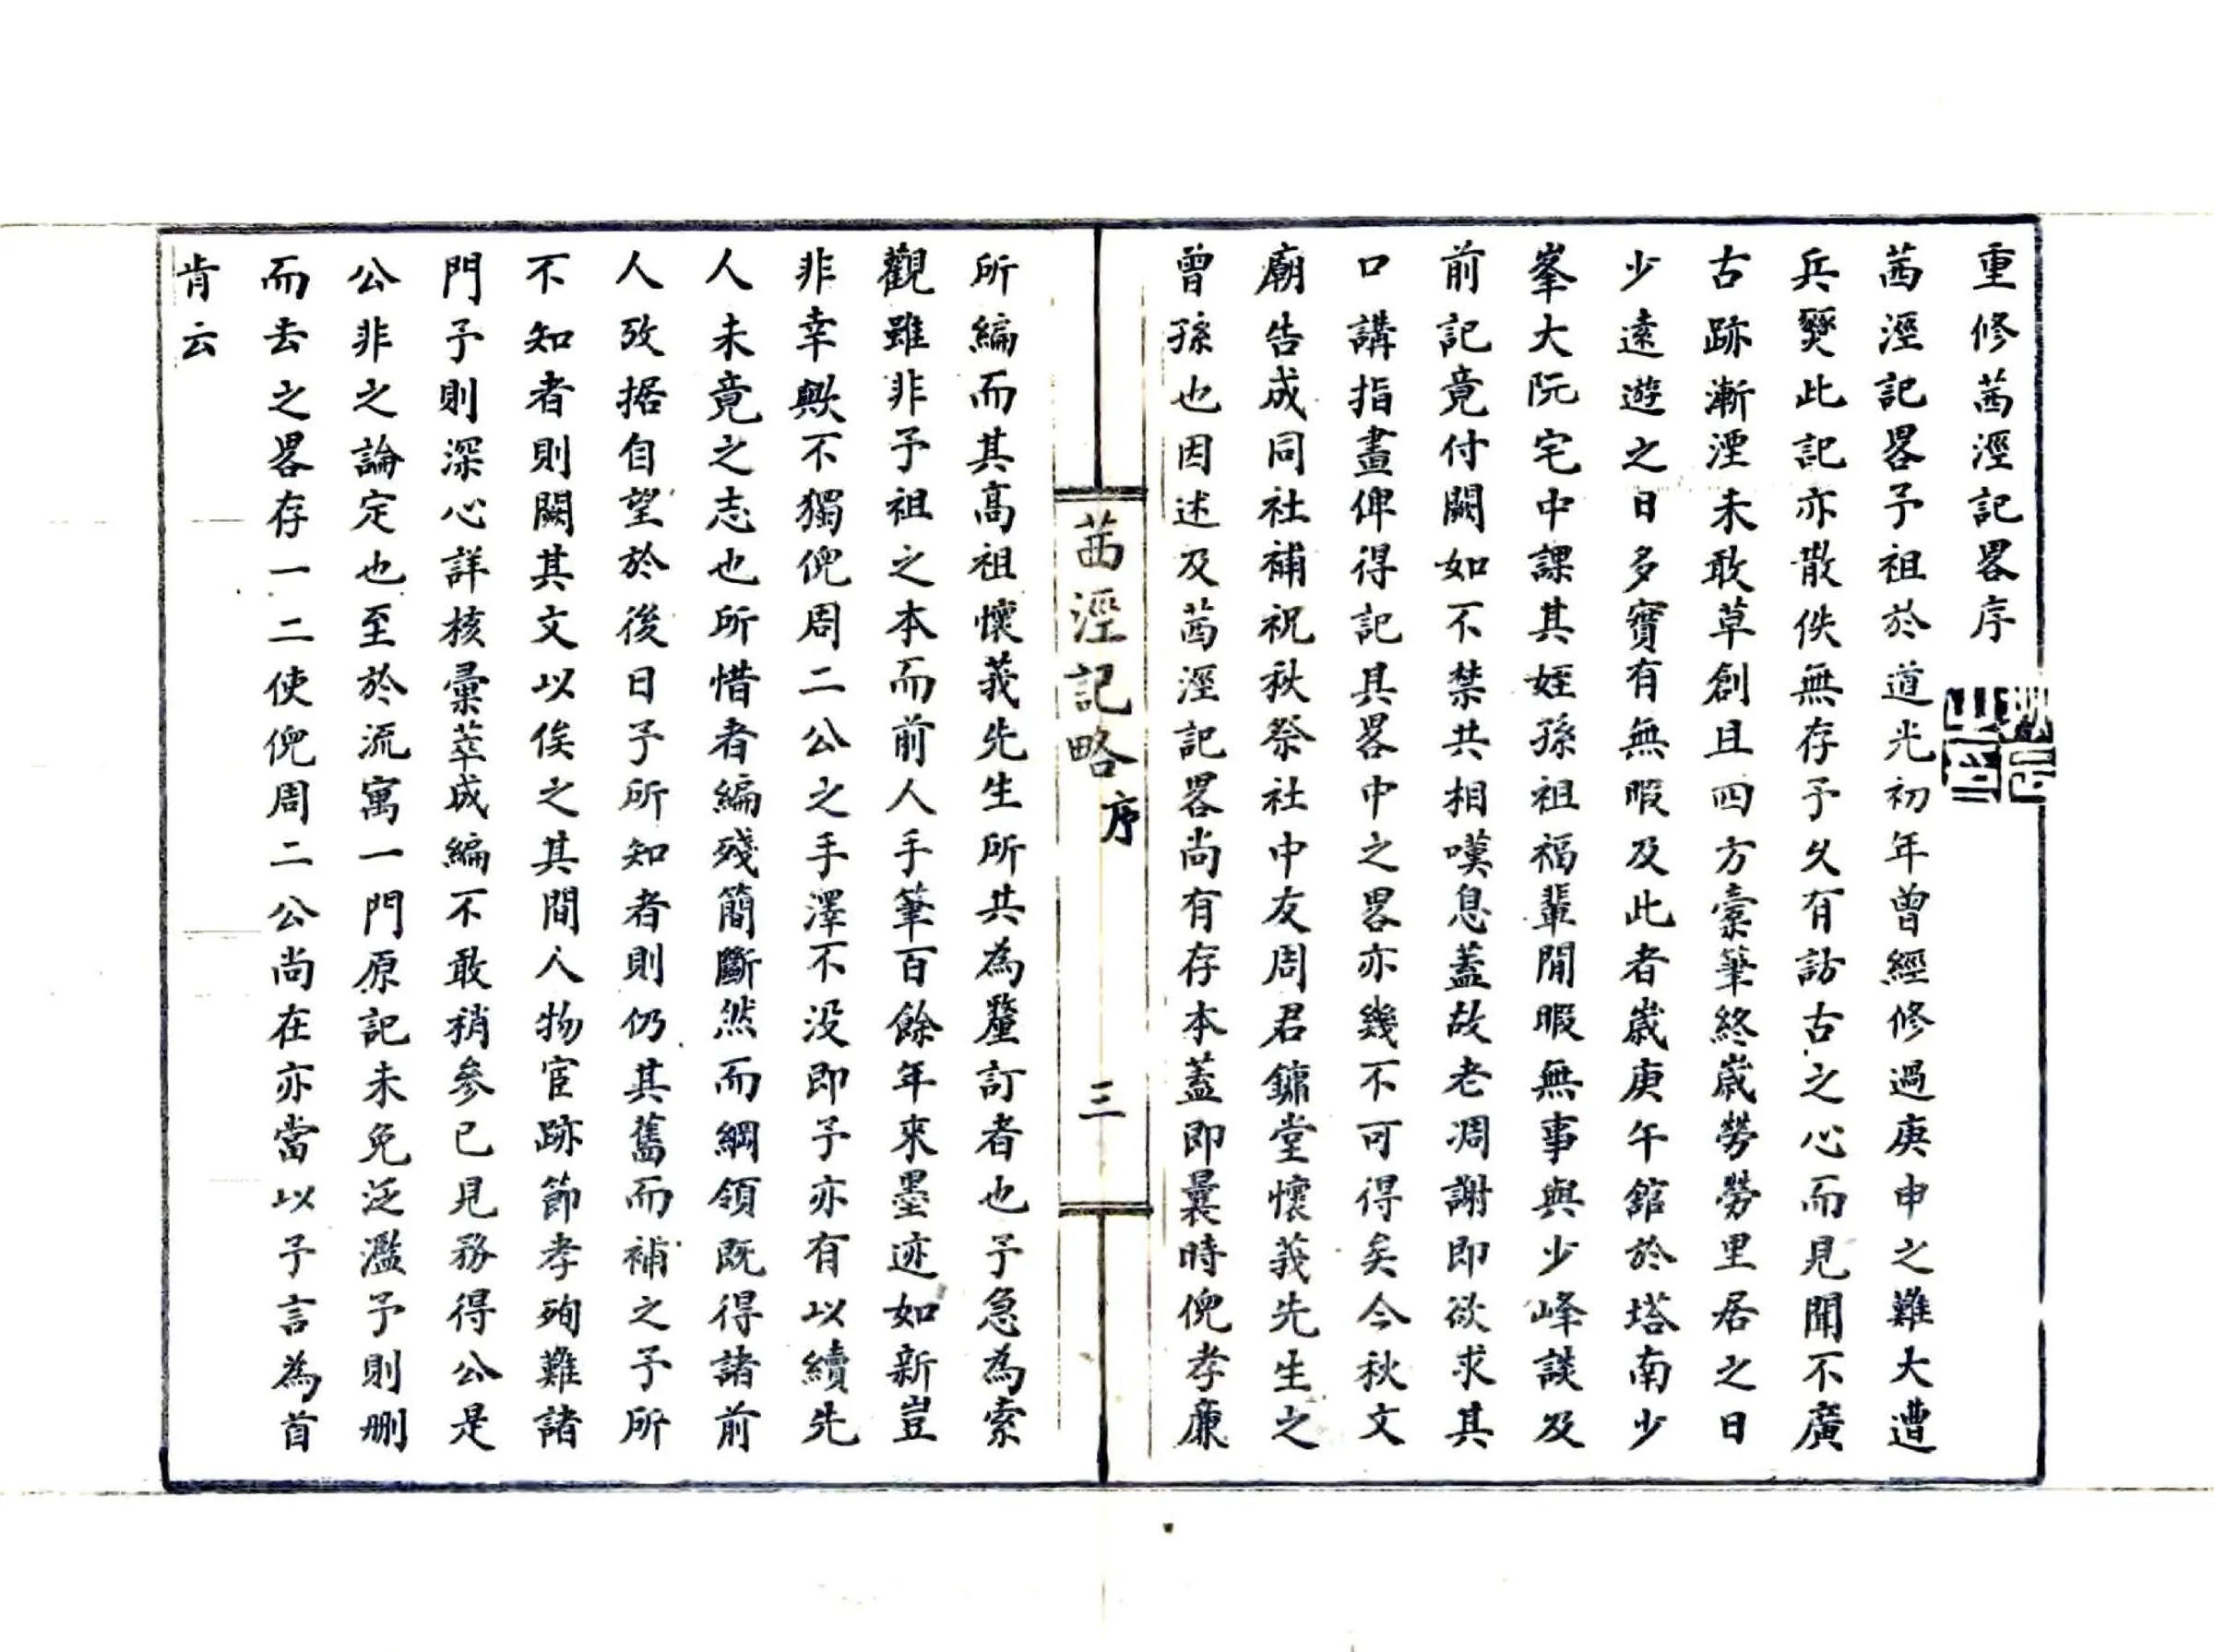 重修茜涇記畧序
茜涇記畧予祖於道光初年曾經修過庚申之難大遭
兵燹此記亦散佚無存予久有訪古之心而見聞不廣
古跡漸湮未敢草創且四方橐筆終歲勞勞里居之日
少遠遊之日多實有無暇及此者歲庚午館於塔南少
峯大阮宅中課其姪孫祖福輩閒暇無事與少峰談及
前記竟付闕如不禁共相嘆息蓋故老凋謝即欲求其
口講指畫俾得記其畧中之畧亦幾不可得矣今秋文
廟告成同社補祝秋祭社中友周君鏞堂懷莪先生之
曾孫也因述及茜涇記畧尚有存本蓋即曩時倪孝廉
茜涇記略
序
三
所編而其高祖懷莪先生所共為釐訂者也予急為索
觀雖非予祖之本而前人手筆百餘年來墨迹如新豈
非幸歟不獨倪周二公之手澤不没即予亦有以續先
人未竟之志也所惜者編殘簡斷然而綱領既得諸前
人攷据自望於後日予所知者則仍其舊而補之予所
不知者則闕其文以俟之其間人物宦跡節孝殉難諸
門予則深心詳核彙萃成編不敢稍參已見務得公是
公非之論定也至於流寓一門原記未免泛濫予則刪
而去之畧存一二使倪周二公尚在亦當以予言為首
肯云